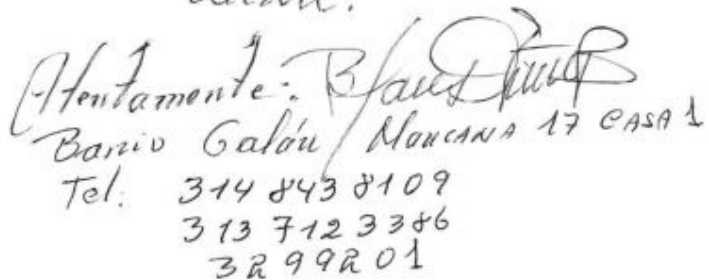 Atentamente:
Barrio Galán Manzana 17 CASA 1
Tel: 314 843 8109
313 712 3386
3299201